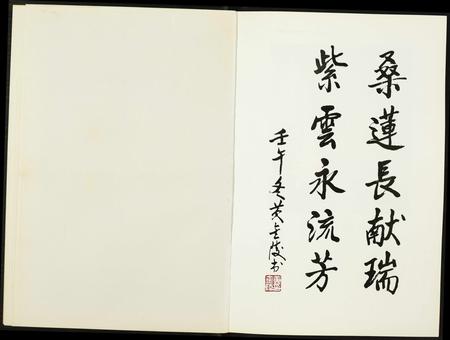 桑蓮長献瑞
紫雲永流芳
壬午冬黄書